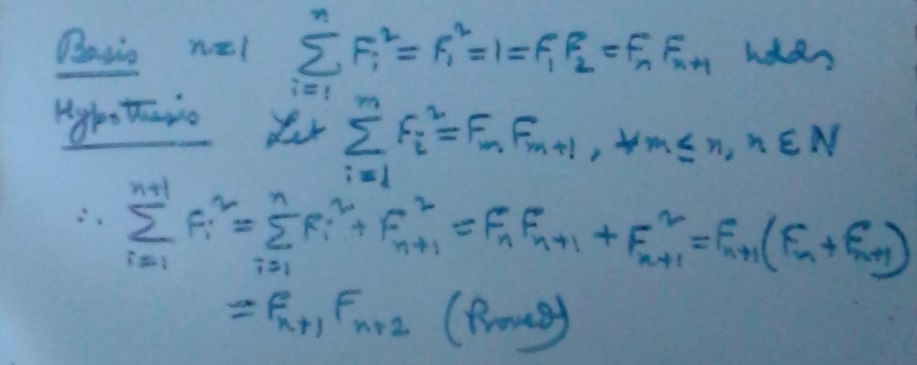 Basis n=1 ∑_{i=1}^{n} F_i^2 = F_1^2 = 1 = F_1 F_2 = F_n F_{n+1} holds
Hypothesis Let ∑_{i=1}^{m} F_i^2 = F_m F_{m+1}, ∀m ≤ n, n ∈ N
∴ ∑_{i=1}^{n+1} F_i^2 = ∑_{i=1}^{n} F_i^2 + F_{n+1}^2 = F_n F_{n+1} + F_{n+1}^2 = F_{n+1}(F_n + F_{n+1})
= F_{n+1} F_{n+2} (Proved)